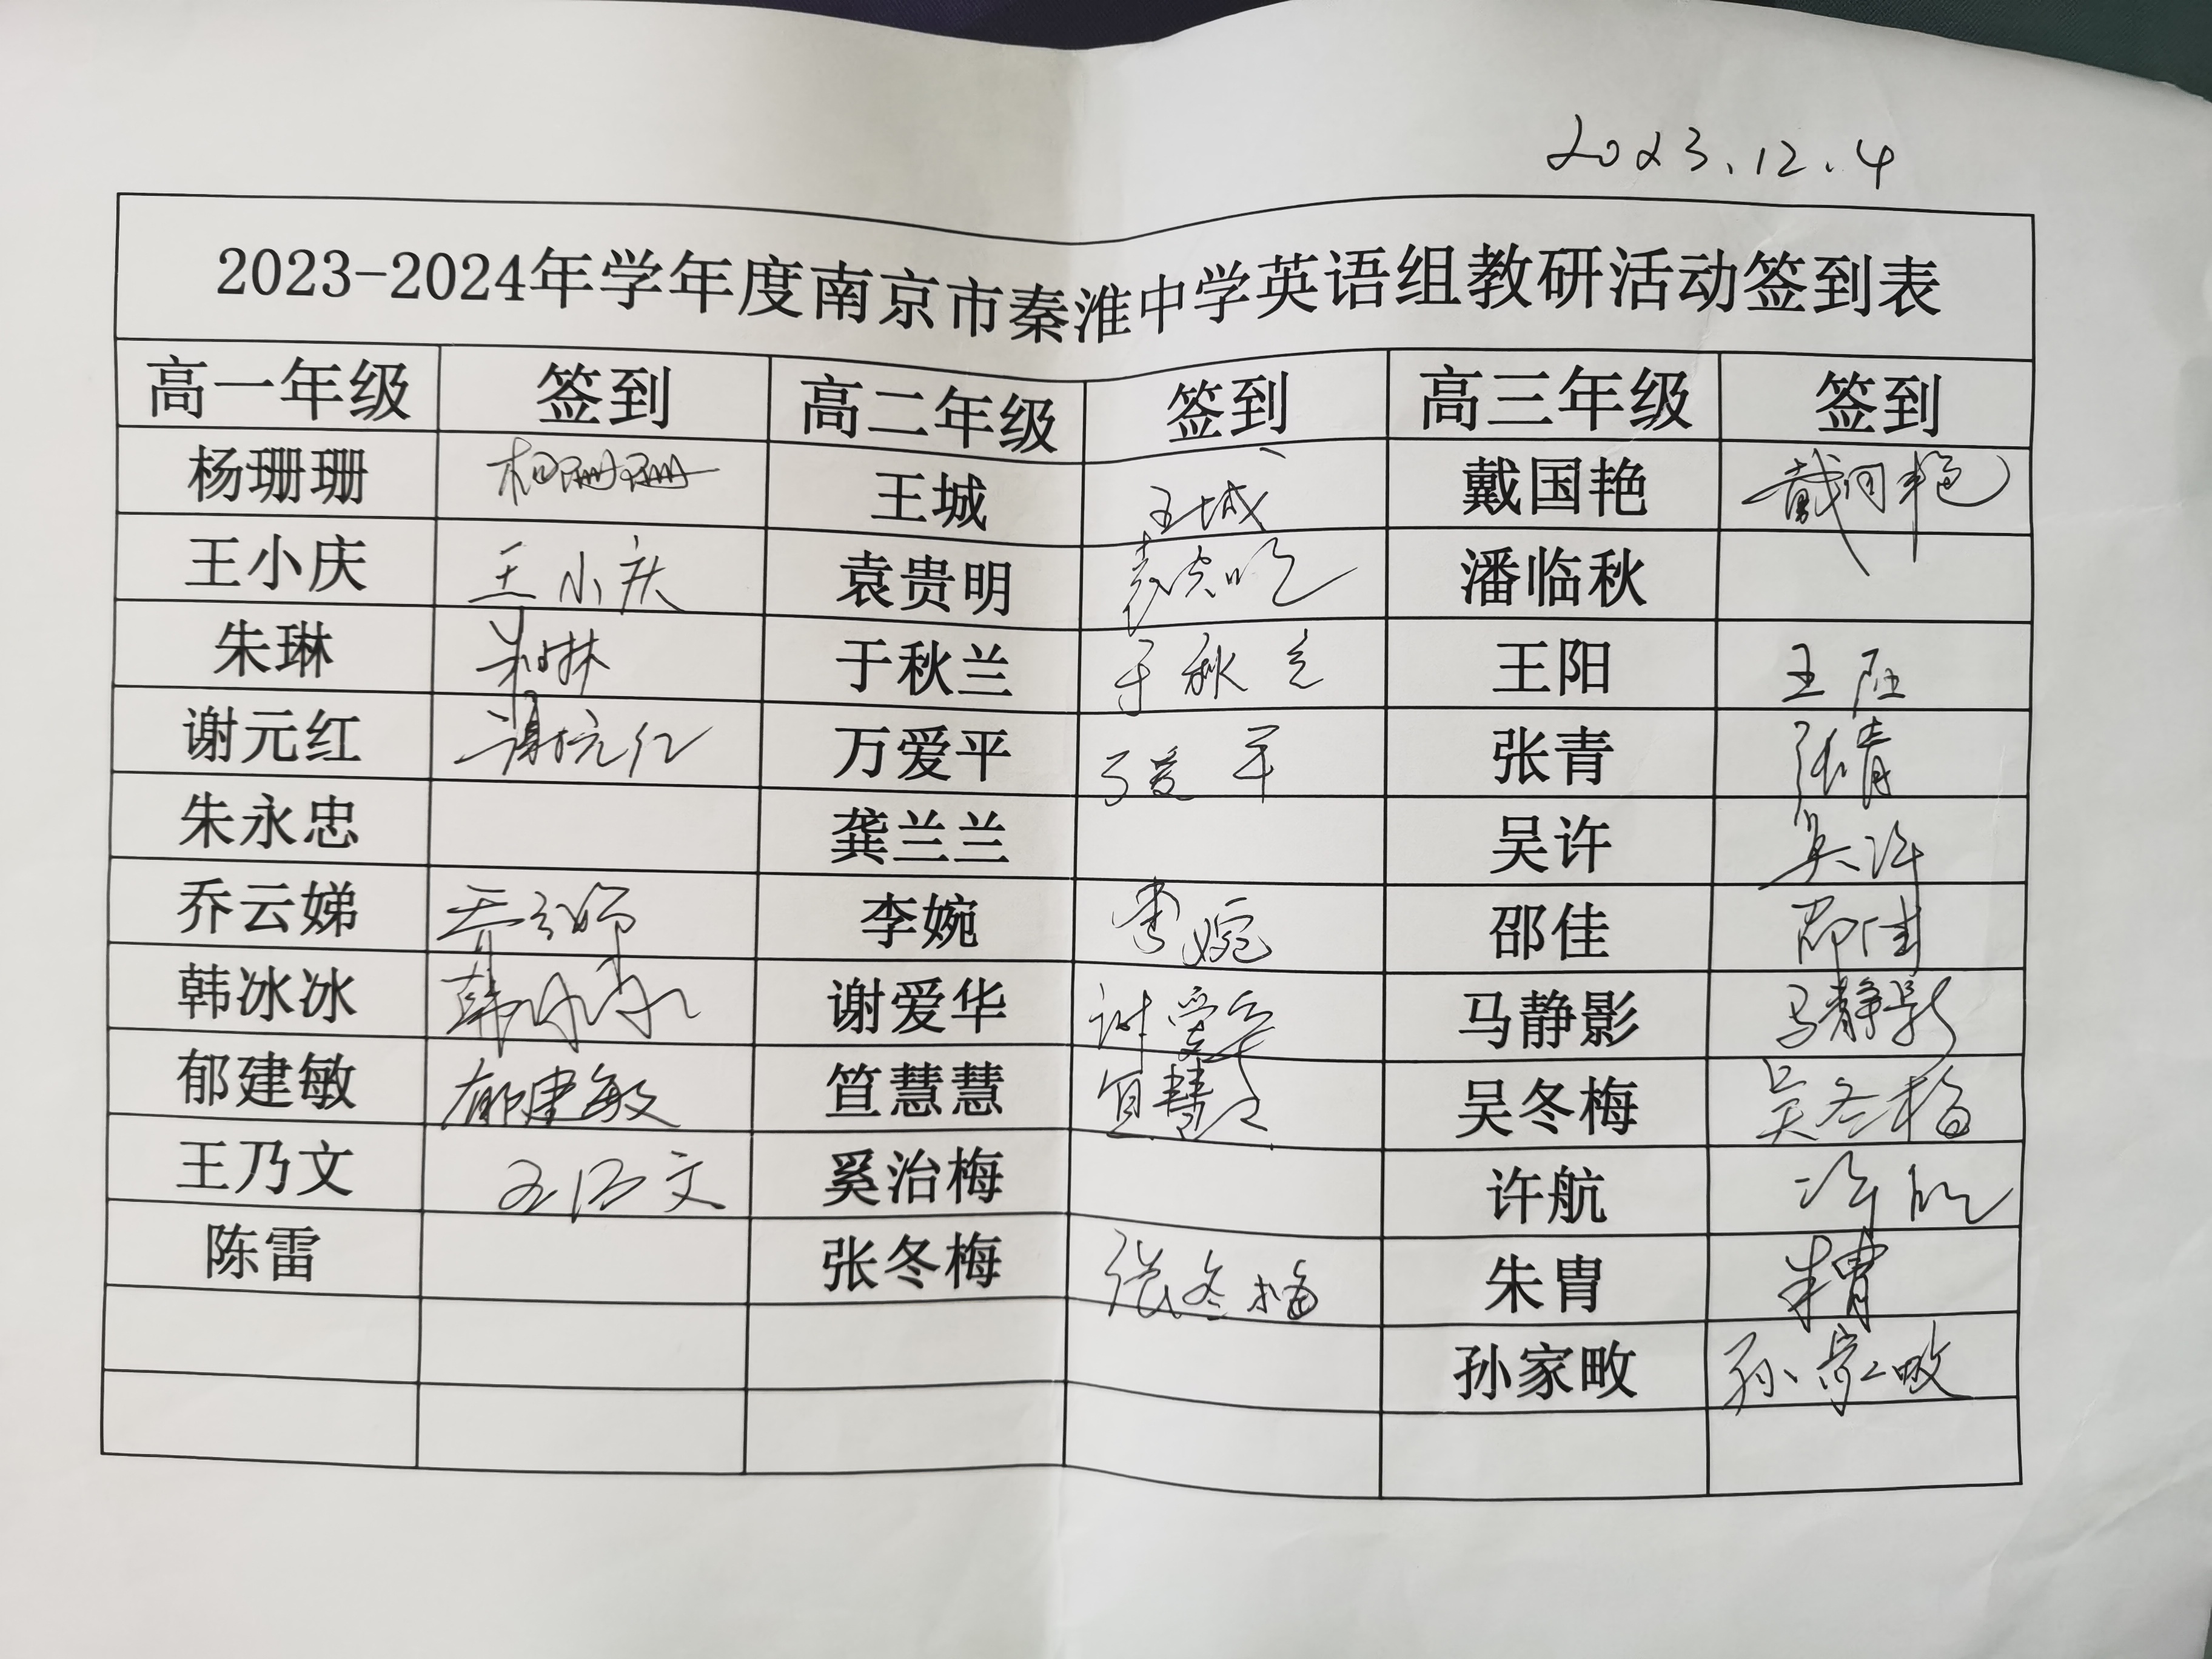 2023.12.4
2023-2024年学年度南京市秦淮中学英语组教研活动签到表
高一年级 签到 高二年级 签到 高三年级 签到
杨珊珊 杨珊珊 王城 王城 戴国艳 戴国艳
王小庆 王小庆 袁贵明 袁贵明 潘临秋
朱琳 朱琳 于秋兰 于秋兰 王阳 王阳
谢元红 谢元红 万爱平 万爱平 张青 张青
朱永忠 龚兰兰 吴许 吴许
乔云娣 乔云娣 李婉 李婉 邵佳 邵佳
韩冰冰 韩冰冰 谢爱华 谢爱华 马静影 马静影
郁建敏 郁建敏 笪慧慧 笪慧慧 吴冬梅 吴冬梅
王乃文 王乃文 奚治梅 许航 许航
陈雷 张冬梅 张冬梅 朱胄 朱胄
孙家畋 孙家畋